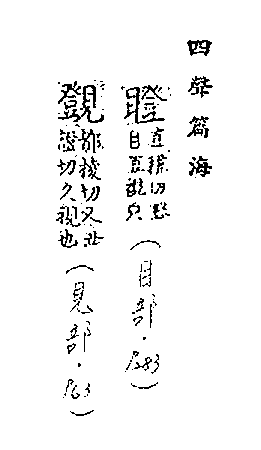 四聲篇海
瞪 直切 目直視皃（目部．）
覴 都稜切又丑證切久視也（見部．）